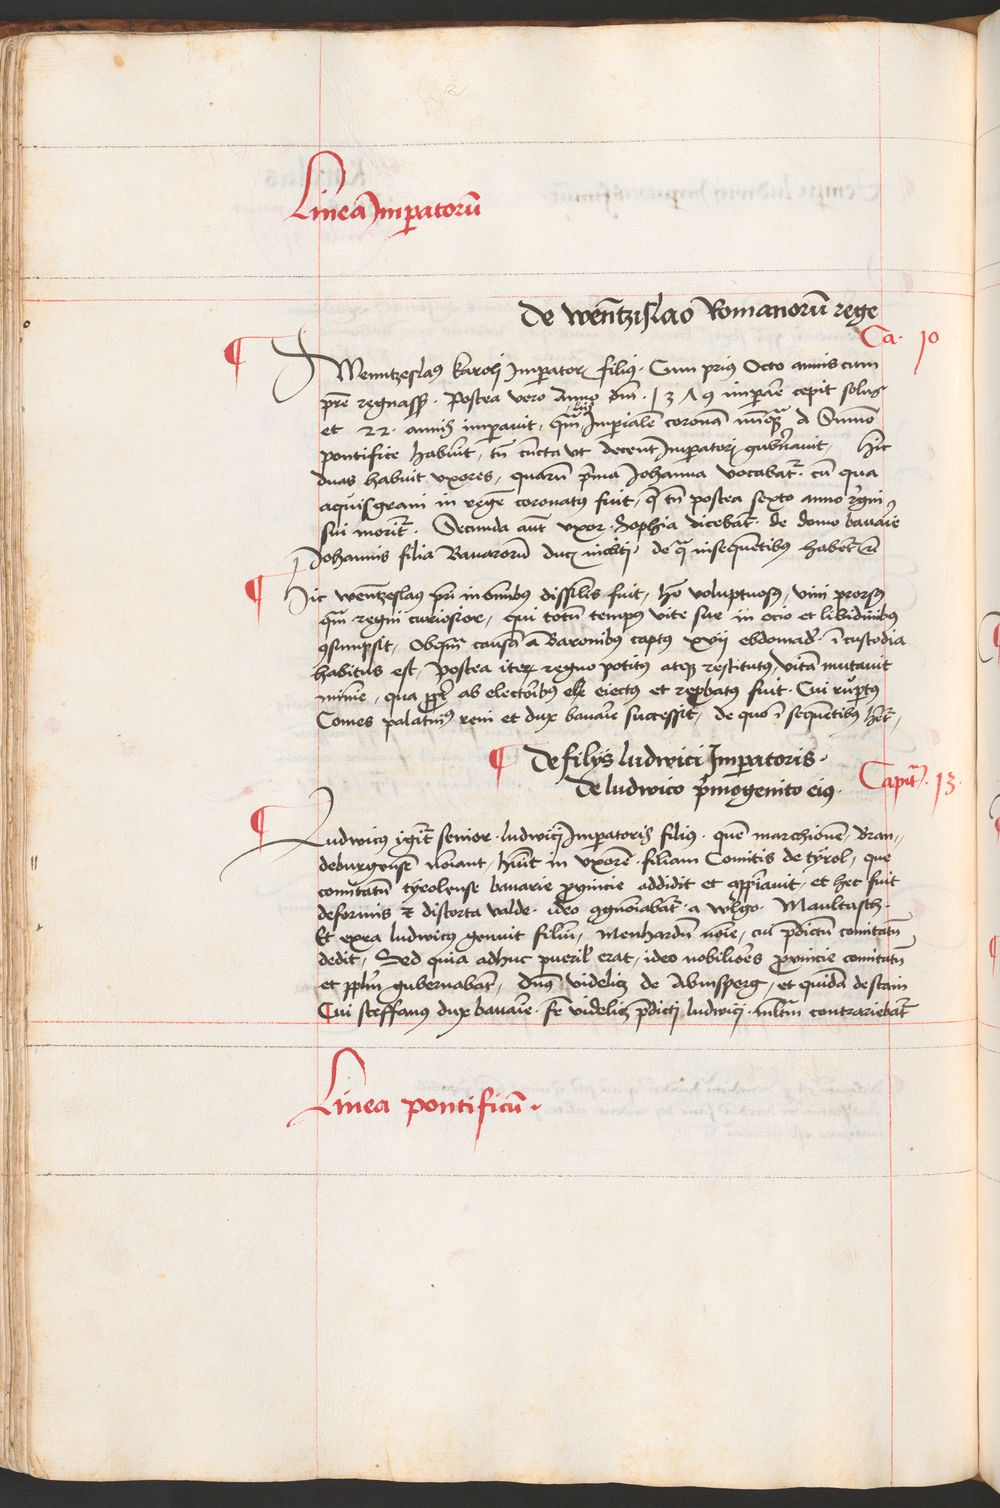 Linea Imperatorũ
De Wentzislao Romanorũ rege
Ca. 10
Wenntzeslaus karolj Imperatorꝭ filiꝰ. Cum priꝰ Octo annis cum
pr̃e regnass&. Postea vero Anno dñi. 13Λ9 imperare cepit solus
et 22. annis imperauit, Imperialẽ coronã nũq̃ȝ a Summo
pontifice habuit, tñ cũcta vt decent Imperatorj gub̃nauit, Hic
duas habuit vxores, quarũ p̃ma Johanna vocabat̃. cũ qua
aquisgrani in regẽ coronatus fuit, q̃ tñ postea sexto anno r̃gni
sui morit̃. Secunda aut̃ vxor. Zophia dicebat̃. de domo bauarie
Johannis filia Bauarorũ ducꝭ inclitj, de q̃ insequẽtibus habet̃ ⁊c̃
Hic wentzeslaus pr̃i in om̃ibus dissil̃is fuit, hõ voluptuosus, vini prorsꝰ
q̃ȝ regni curiosior, qui totũ tempus vite sue in ocio et libidinibus
ꝯsumpsit, Obq̃m causã a Baronibus captus xvij ebdomad̃. ĩ custodia
habitus est, Postea iteꝝ regno potitus atqȝ restitutus, vitã mutauit
minime, qua ꝓpt̃ ab electoribus eiectus et rep̃batus fuit. Cui rup̃tus
Comes palatinus reni et dux bauarie successit, de quo ĩ sequẽtibus het̃,
De filijs ludwici Imperatoris.
De ludwico p̃mogenito eiꝰ.
Capit̃. 13.
Ludwicus igit̃ senior. ludwicj Imperatoris filius. quẽ marchionẽ. Bran,,
deburgensẽ noĩant, hũit in vxorẽ. filiam Comitis de tyrol, que
comitatũ tyrolense bauarie ꝓuincie addidit et app̃iauit, et hec fuit
deformis ⁊ distorta valde. ideo ꝯgnoĩabat̃. a wlgo. Maultasch.
Et ex ea ludwicus genuit filiũ, Menhardũ noĩe, cui p̃dictũ comitatũ
dedit, Sed quia adhuc pueril̃ erat, ideo nobiliores ꝓuincie comitatũ
et pp̃l̃m gubernabant, Dñs videlicꝫ de Abensperg, et quidã de stain
Cui steffanus dux bauarie. fr̃ videlicꝫ p̃dictj ludwicj. ml̃tũ contrariebat̃
Linea pontificũ.